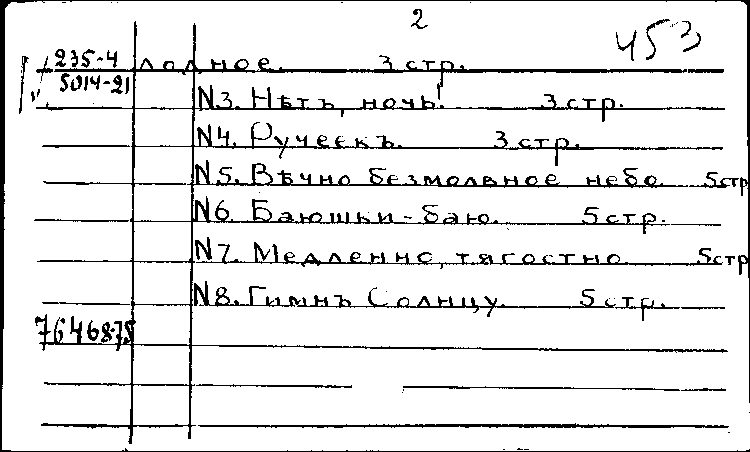 2
453
235-4 лодное. 3 стр.
5014-21
N3. Нѣтъ, ночь! 3 стр.
N4. Ручеекъ. 3 стр.
N5. Вѣчно безмолвное небо 5 стр
N6. Баюшки-баю. 5 стр.
N7. Медленно, тягостно 5 стр
N8. Гимнъ Солнцу. 5 стр.